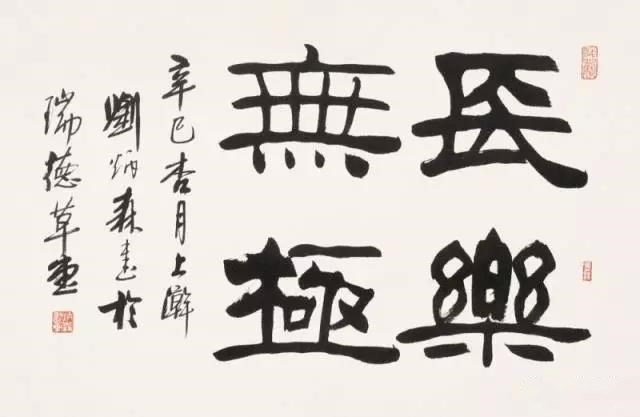 長樂
無極
辛巳杏月上澣
劉炳森書於
瑞德草堂